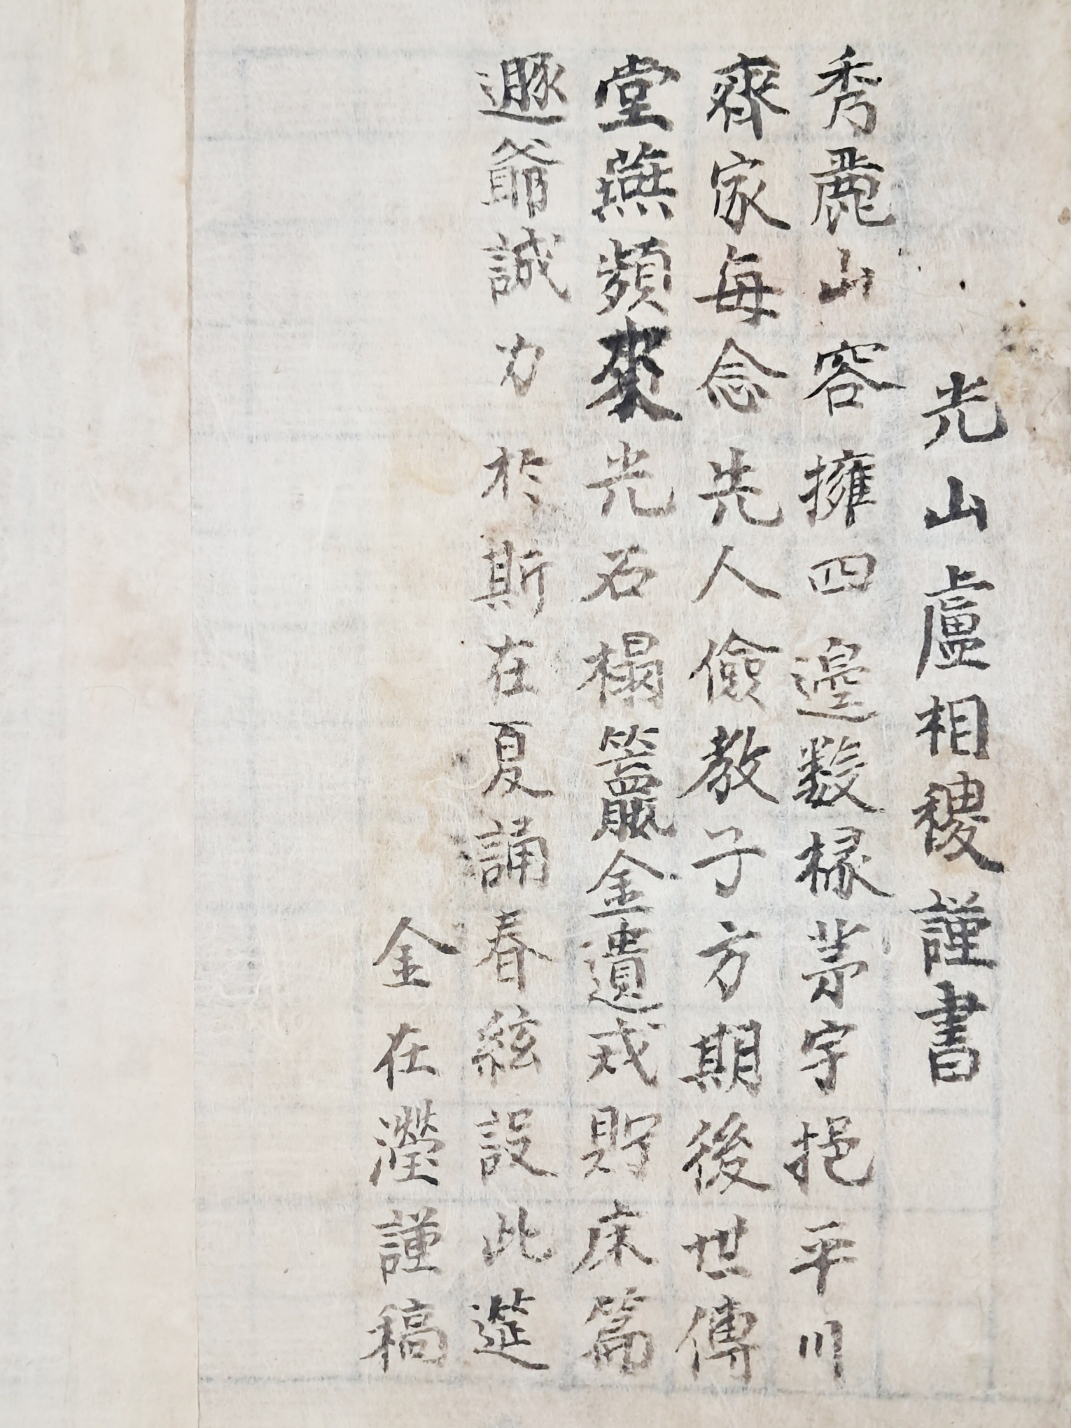 光山盧相稷謹書
秀麗山容擁四邊數椽茅宇挹平川
齊家每念先人儉教子方期後世傳
堂燕頻來光石榻籯金遺戒貯床篇
遯爺誠力於斯在夏誦春絃設此筵
金在瀅謹稿